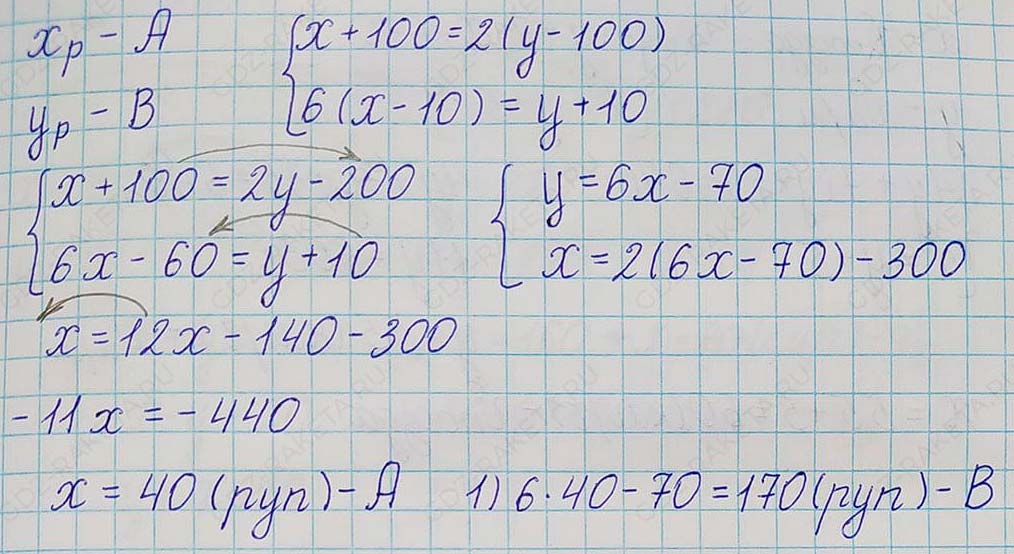 xр - A
yр - B
{x + 100 = 2(y - 100)
6(x - 10) = y + 10
{x + 100 = 2y - 200
6x - 60 = y + 10
{y = 6x - 70
x = 2(6x - 70) - 300
x = 12x - 140 - 300
-11x = -440
x = 40 (руп) - A
1) 6·40 - 70 = 170 (руп) - B